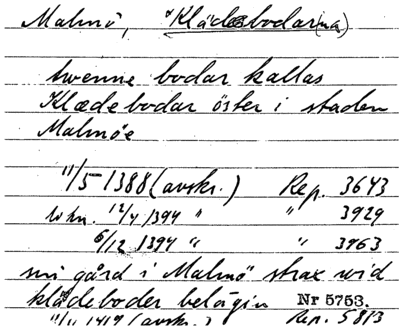 Malmö, "Klädesbodar(na)
twenne bodar kallas
Klædebodar öster i staden
Malmöe
11/5 1388 (avskr.) Rep. 3643
12/4 1394 " " 3929
6/12 1394 " " 3963
sin gård i Malmö strax wid
klædeboder belägin Nr 5753.
1419 (avskr.) Rep. 5813